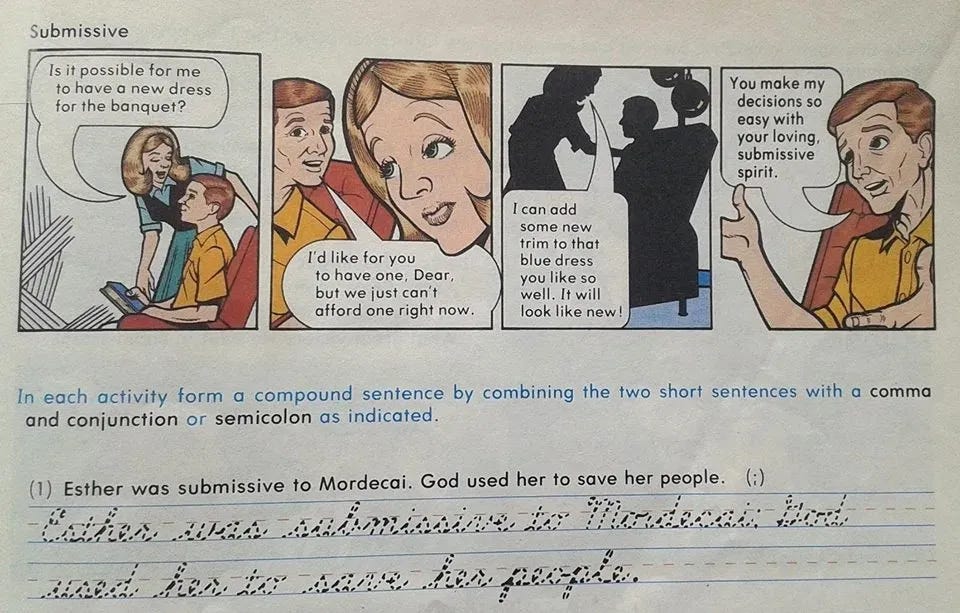 Submissive
Is it possible for me
to have a new dress
for the banquet?
I'd like for you
to have one, Dear,
but we just can't
afford one right now.
I can add
some new
trim to that
blue dress
you like so
well. It will
look like new!
You make my
decisions so
easy with
your loving,
submissive
spirit.
In each activity form a compound sentence by combining the two short sentences with a comma
and conjunction or semicolon as indicated.
(1) Esther was submissive to Mordecai. God used her to save her people. (;)
Esther was submissive to Mordecai; God
used her to save her people.